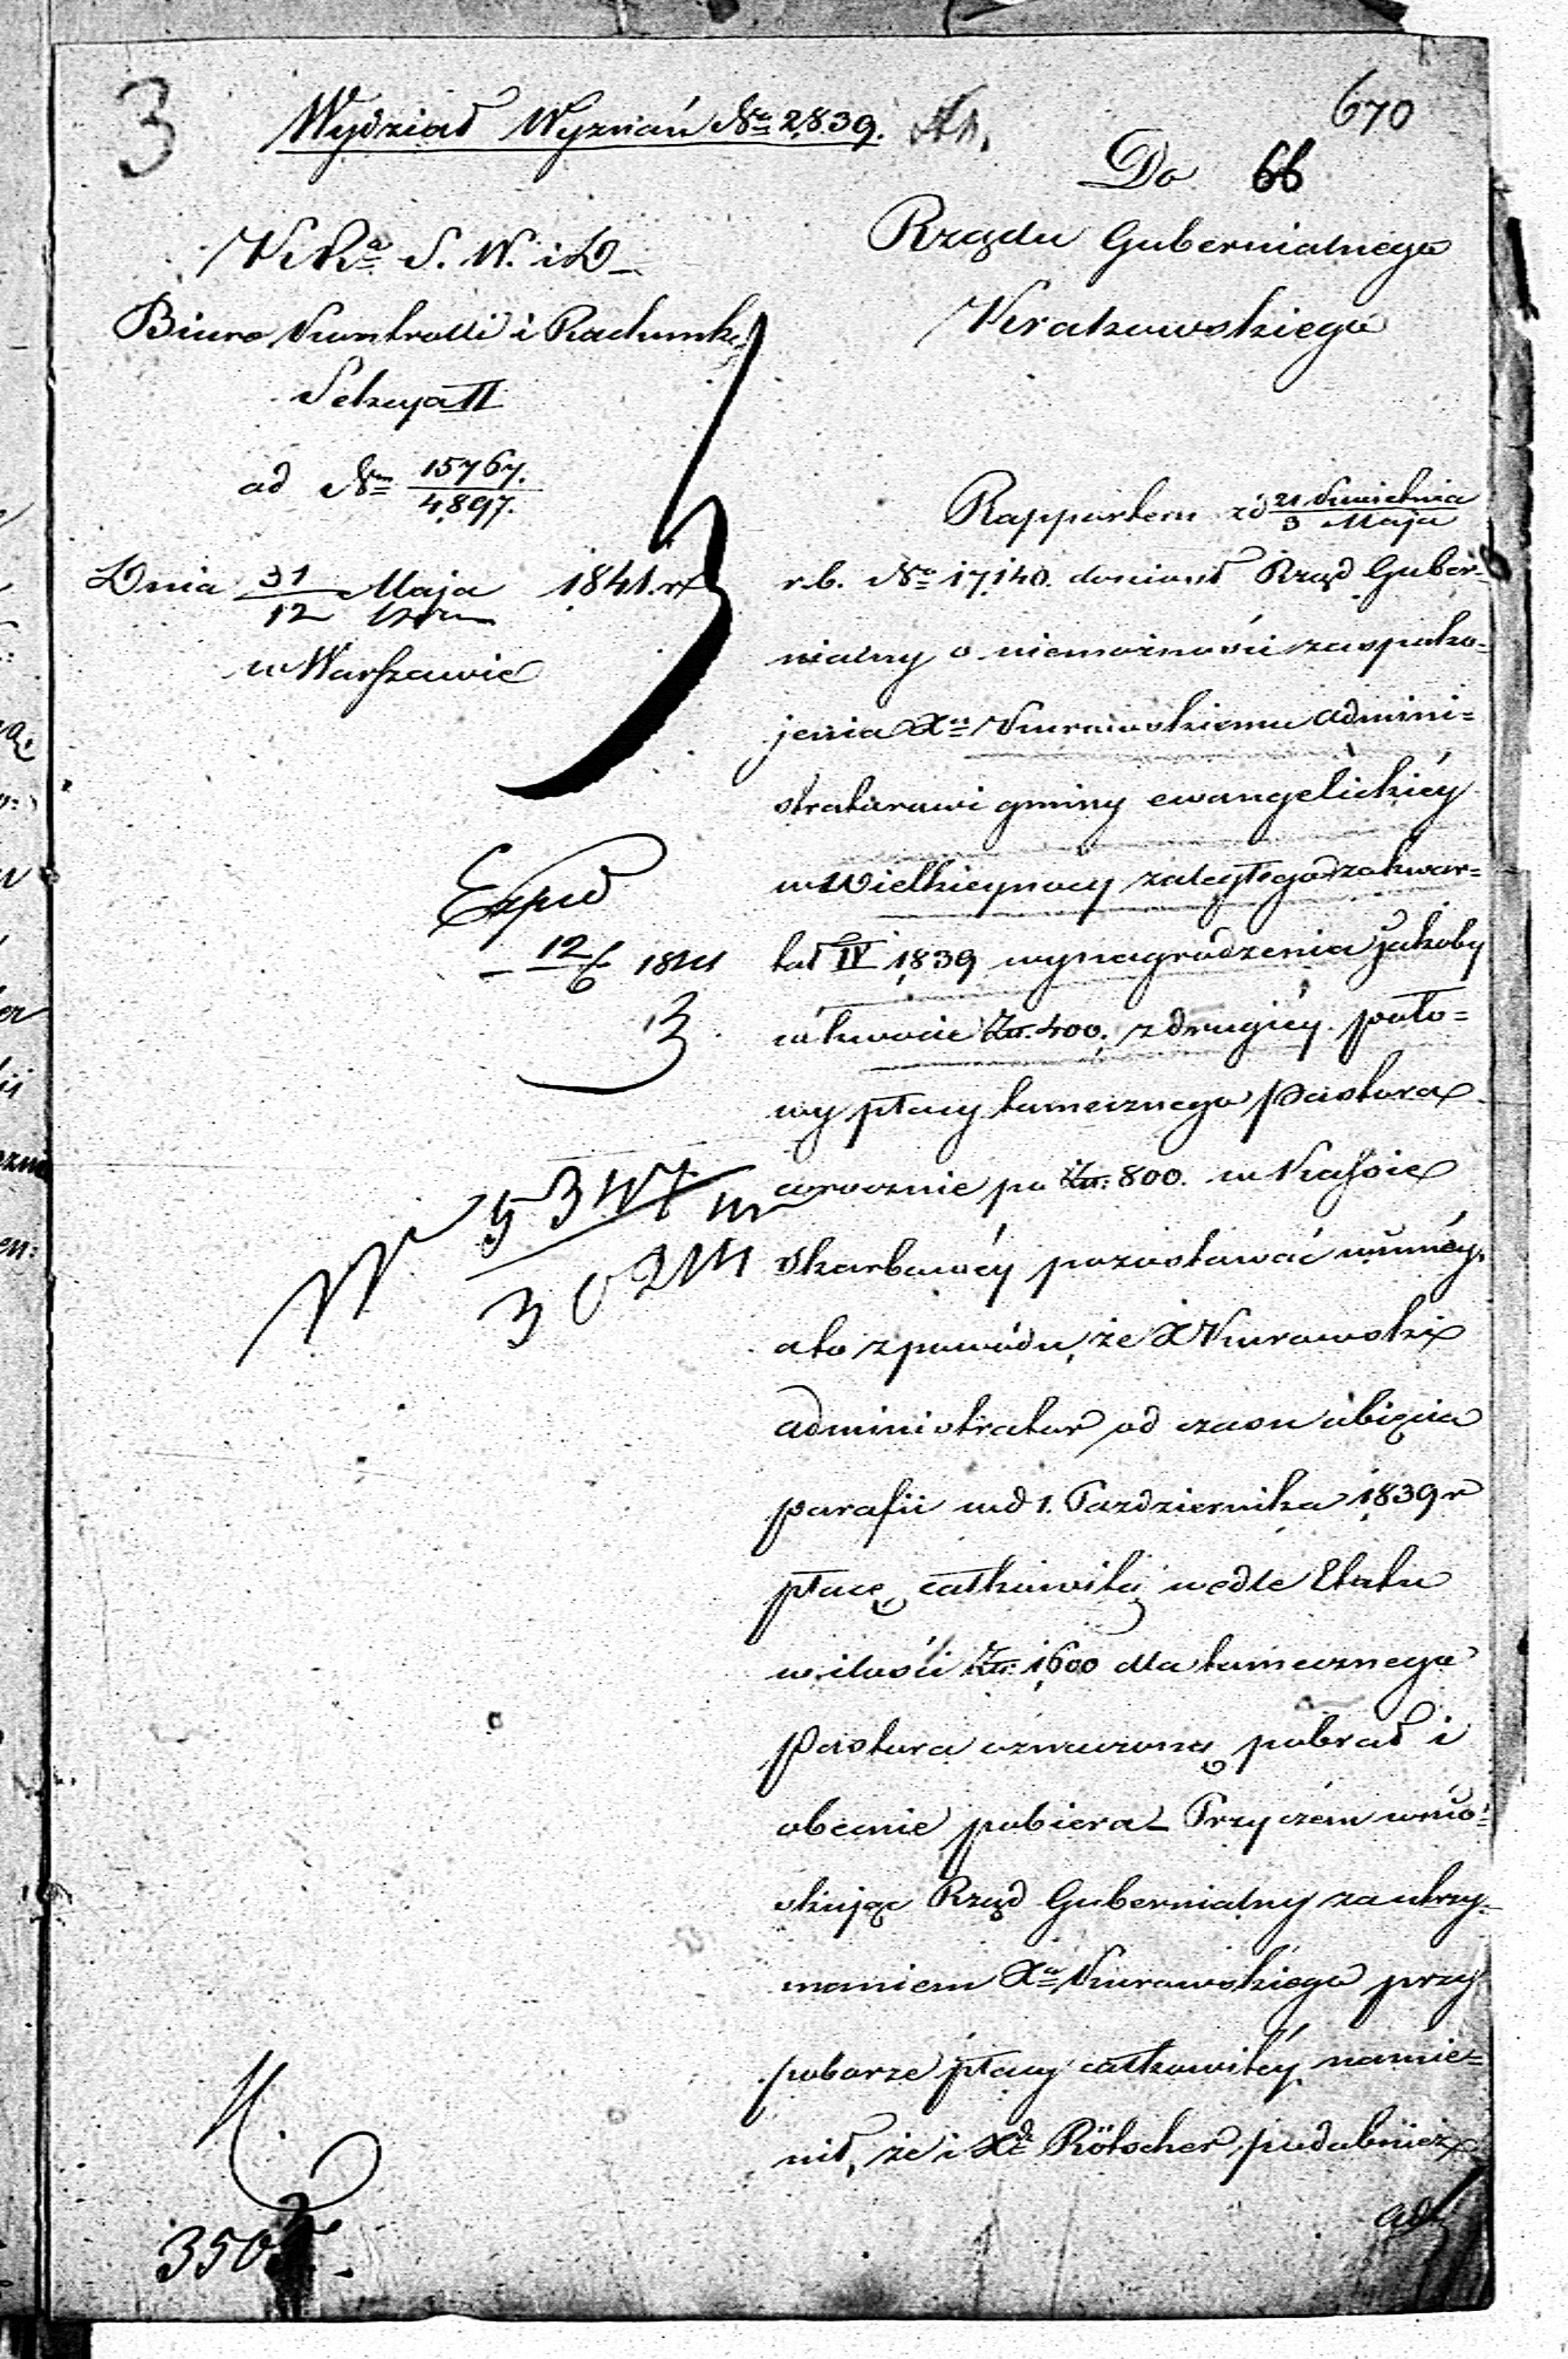 3
Wydział Wyznań Nro 2839.
670
66
K. Ra. S. W. i D.
Biuro Kontrolli i Rachunko:
Sekcya II
ad Nrm 15767./4897.
Dnia 31/12 Maja 1841. r.
w Warszawie
Exped
12/6 1841
M.
Do
Rządu Gubernialnego
Krakowskiego
Rapportem z d 21 Kwietnia/3 Maja
r.b. Nro 17,140. doniosł Rząd Guber-
nialny o niemożności zaspoko-
jenia Xu Kurowskiemu admini=
stratorowi gminy ewangelickiéy
w Wielkieynocy zaległego za kwar=
tał IV 1839 wynagrodzenia jakoby
w kwocie Złł. 400. z drugiéy poło=
wy płacy tamecznego Pastora
corocznie po Złł. 800. w Kassie
Skarbowéy pozostawać winnéy.
a to z powodu, że X Kurowski
administrator od czasu obięcia
parafii w d 1. Pazdziernika 1839 r
płacę całkowitą wedle Etatu
w ilości Złł. 1600 dla tamecznego
Pastora oznaczoną pobrał i
obecnie pobiera_ Przyczém wnio=
skując Rząd Gubernialny za utrzy-
maniem Xa Kurowskiego przy
poborze płacy całkowitéy, namie=
nił, że i Xdz Rötscher podobnież